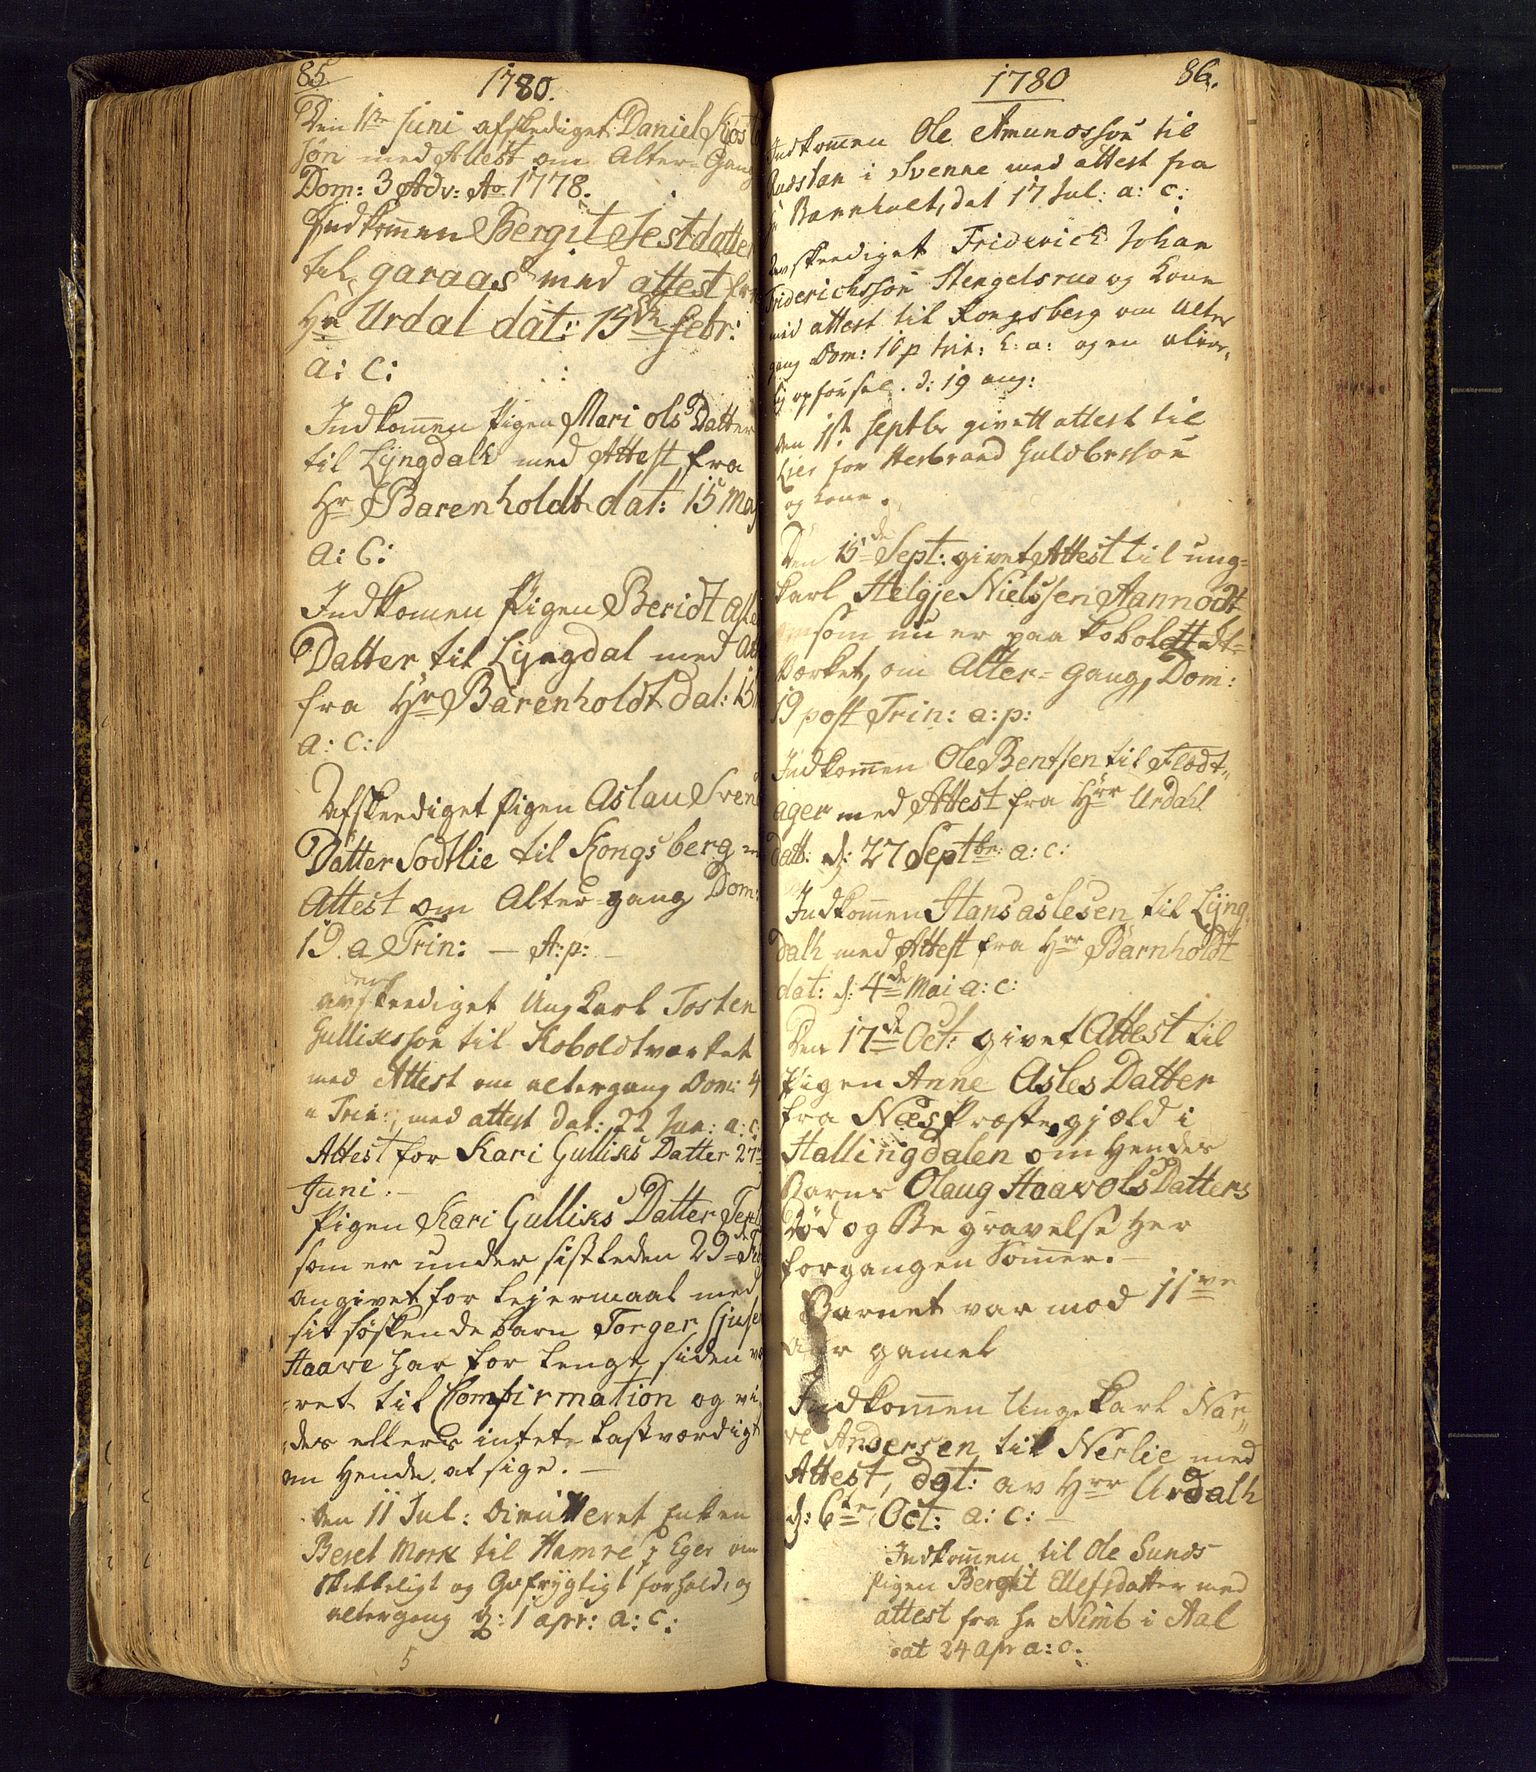 85
1780.
Den 1ste Juni afskediget Daniel
søn med Attest om Alter-Gang
Dom: 3 Adv: Ao 1778.
Indkommen Bergit Jestdatter
til garaas med attest fra
Hr Urdal dat: 15de Febr:
a: c:
Indkommen Pigen Mari olsDatter
til Lyngdalh med Attest fra
Hr Barenholdt dat: 15 May
a: c:
Indkomen Pigen Beridt
Datter til Lyngdal med
fra Hr Barenholdt dat: 15
a: c:
Afskeediget Pigen Aslau Svens
Datter Sodtlie til Kongsberg
Attest om Alter-gang Dom:
19. a Trin: — A: p: —
avskeediget Ung Karl Tosten
Gullikssøn til Koboldtværket
med Attest om altergang Dom: 4
a Trin: med attest dat: 22 Jun: a: c:
Attest for Kari Gulliks Datter 27
Juni. —
Pigen Kari Gulliks Datter
som er under sistleden 29de
angivet for lejermaal med
sit søskendebarn Torger
Haave har for lenge siden væ
ret til Confirmation og vi
des ellers intet lastværdigt
om Hende at sige. —
Den 11 Jul: Dimitteret Enken
Beret Mork til Hamre p Eger om
skikkeligt og Gufrygtigt forhold, og
altergang d: 1 apr: a: c:
5
1780
86.
Indkommen Ole Amundssøn til
i Svenne med attest fra
Hr Barnholt, dat 17 Jul: a: c:
Avskeediget Friderich Johan
Friderichssøn Stengelsrud og kone
med attest til Kongsberg om alter
gang Dom: 10 p trin: h. a: og en
opførsel. d: 19 aug:
Den 1ste Septbr givett attest til
Lier for Herbrand Guldbrssøn
og kone.
Den 15de Sept: givet Attest til ung-
karl Helgje Nielssen Aannodt
som nu er paa Kobolttedt-
værket, om Alter-gang, Dom:
19 post Trin: a: p:
Indkommen Ole Bentsen til Flodt-
ager med Attest fra Hrr Urdahl
datt: d: 27 Septbr: a: c:
Indkommen Hans aslesen til Lyng
dalh med Attest fra Hrr Barnholdt
dat: d: 4de Mai a: c:
Den 17de Oct: givet Attest til
Pigen Anne Asles Datter
fra Næs Præstegjæld i
Hallingdalen om Hendes
Barns Olaug HaavolsDatters
Død og Begravelse her
forgangen Sommer. —
Barnet var mod 11ve
aar gamel
Indkommen Ungekarl Nar-
ve Andersen til Nerlie med
Attest, dat: av Hrr Urdalh
d: 6te Oct: a: c: —
Indkommen til Ole Sunds
pigen Bergit Ellefsdatter med
attest fra hr Nimb i Aal
dat 24 Apr a: c: